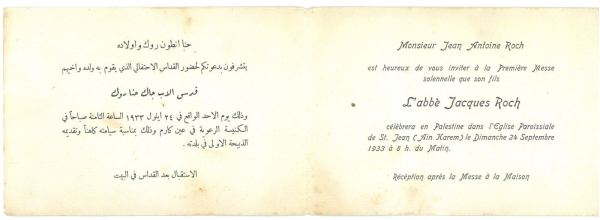 حنا انطون روك واولاده
يتشرفون بدعوتكم لحضور القداس الاحتفالي الذي يقوم به ولده واخيهم
قدسي الاب جاك حنا روك
وذلك يوم الاحد الواقع في ٢٤ ايلول ١٩٣٣ الساعة الثامنة صباحاً في
الكنيسة الرعوية في عين كارم وذلك بمناسبة سيامته كاهناً وتقديمه
الذبيحة الاولى في بلدته .
الاستقبال بعد القداس في البيت
Monsieur Jean Antoine Roch
est heureux de vous inviter à la Première Messe
solennelle que son fils
L'abbè Jacques Roch
célèbrera en Palestine dans l'Eglise Paroissiale
de St. Jean (Ain Karem) le Dimanche 24 Septembre
1933 à 8 h. du Matin.
Réception après la Messe à la Maison